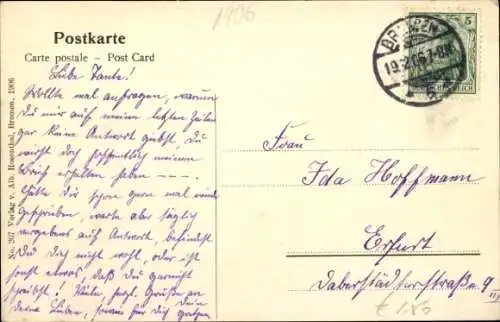 1906
Postkarte
Carte postale – Post Card
No. 207 Verlag v. Alb. Rosenthal, Bremen, 1906
Liebe Tante!
Wollte mal anfragen, warum
Du mir auf meine letzten Zeilen
gar keine Antwort giebst, Du
wirst doch hoffentlich meinen
Brief erhalten haben
Hätte Dir schon gern mal wieder
geschrieben, warte aber täglich
vergebens auf Antwort, befindest
Du Dich nicht wohl, oder ist
sonst etwas, daß Du garnicht
schreibst! herzl. Grüße an
Deine Lieben, sowie für Dich
Dein
BREMEN
19.2.06. 7-8N
5
REICH
Frau
Ida Hoffmann
Erfurt
Daberstädterstraße 9